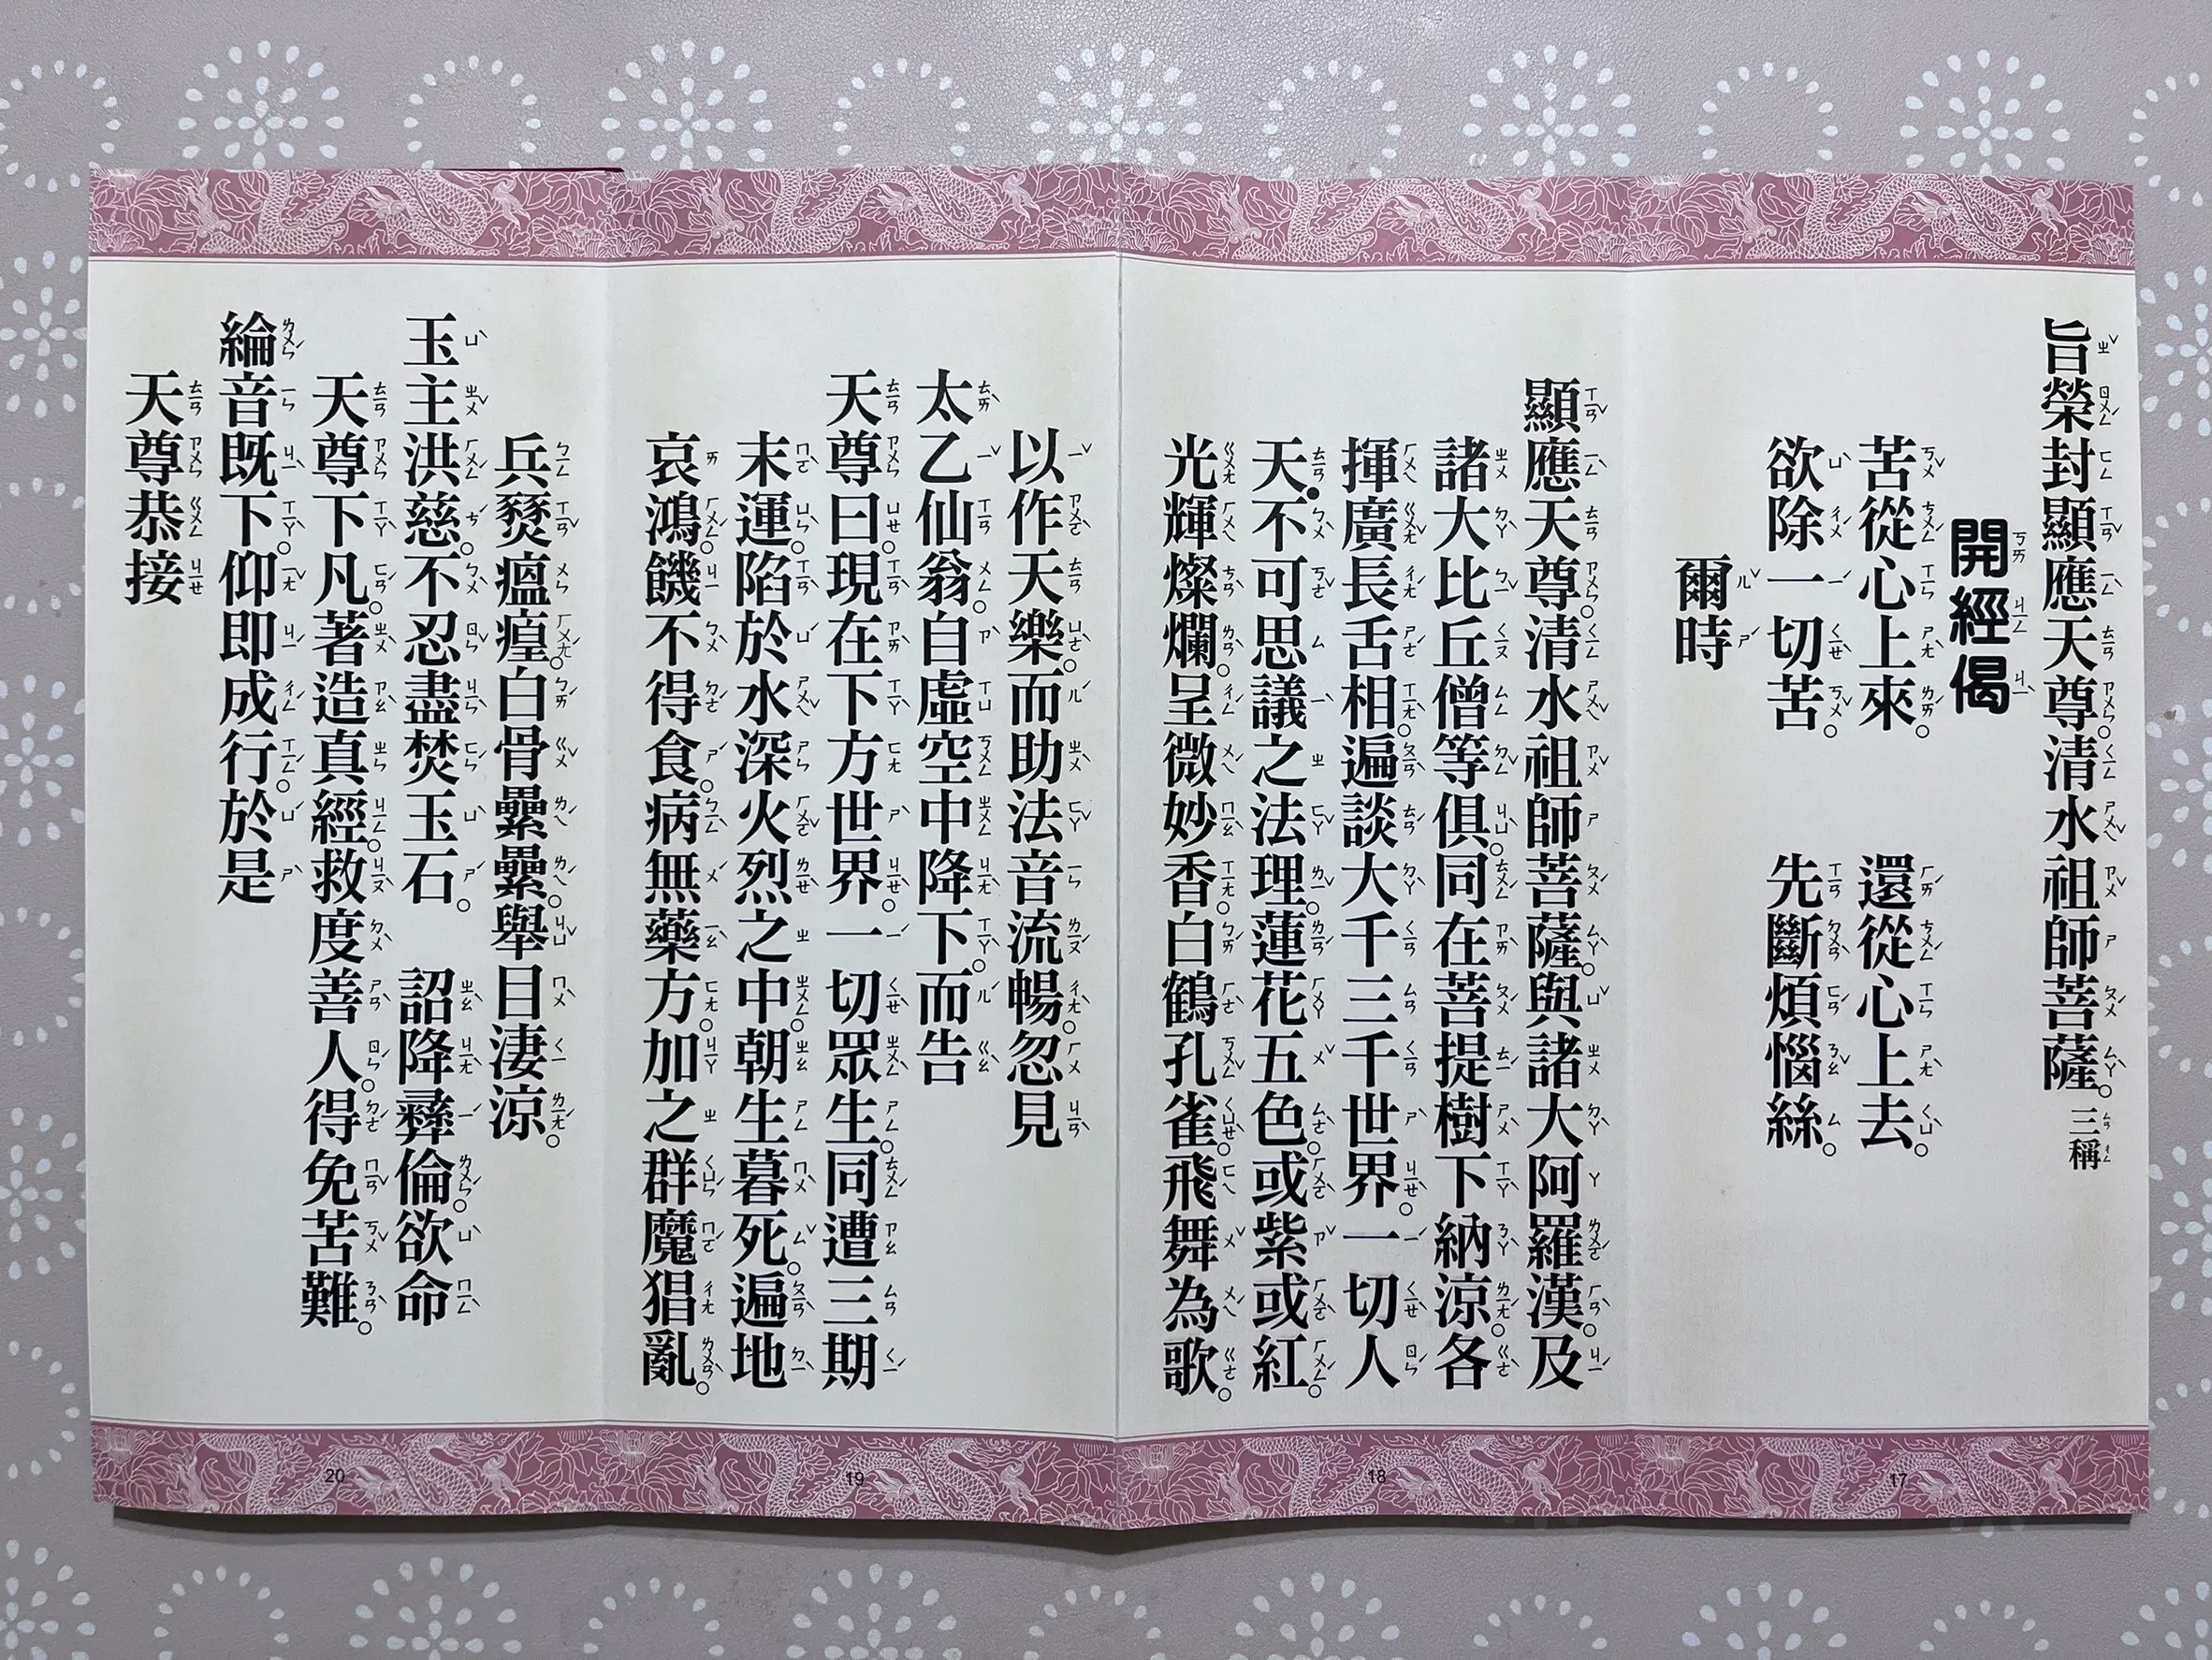 旨榮封顯應天尊清水祖師菩薩。三稱
開經偈
苦從心上來。　還從心上去。
欲除一切苦。　先斷煩惱絲。
爾時
顯應天尊清水祖師菩薩。與諸大阿羅漢。及
諸大比丘僧等俱。同在菩提樹下納涼。各
揮廣長舌相。遍談大千三千世界。一切人
天•不可思議之法理。蓮花五色。或紫或紅。
光輝燦爛。呈微妙香。白鶴孔雀。飛舞為歌。
以作天樂。而助法音流暢。忽見
太乙仙翁。自虛空中降下。而告
天尊曰。現在下方世界。一切眾生。同遭三期
末運。陷於水深火烈之中。朝生暮死。遍地
哀鴻。饑不得食。病無藥方。加之群魔猖亂。
兵燹瘟瘟。白骨纍纍。舉目淒涼。
玉主洪慈。不忍盡焚玉石。　詔降彝倫。欲命
天尊下凡。著造真經。救度善人。得免苦難。
綸音既下。仰即成行。於是
天尊恭接
17
18
19
20